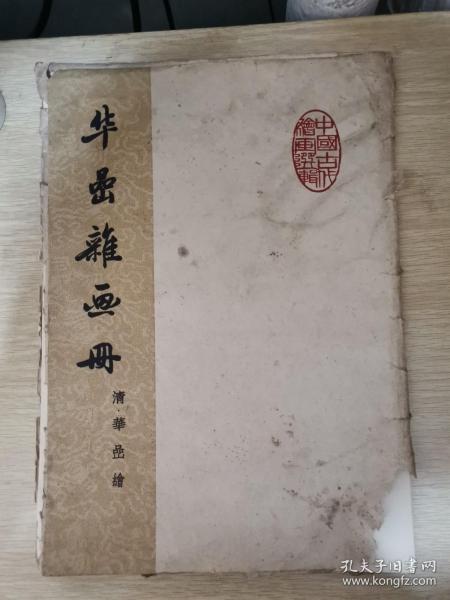 华喦雜画冊
清·華喦繪
中國古代
繪画選輯
孔夫子旧书网
www.kongfz.com